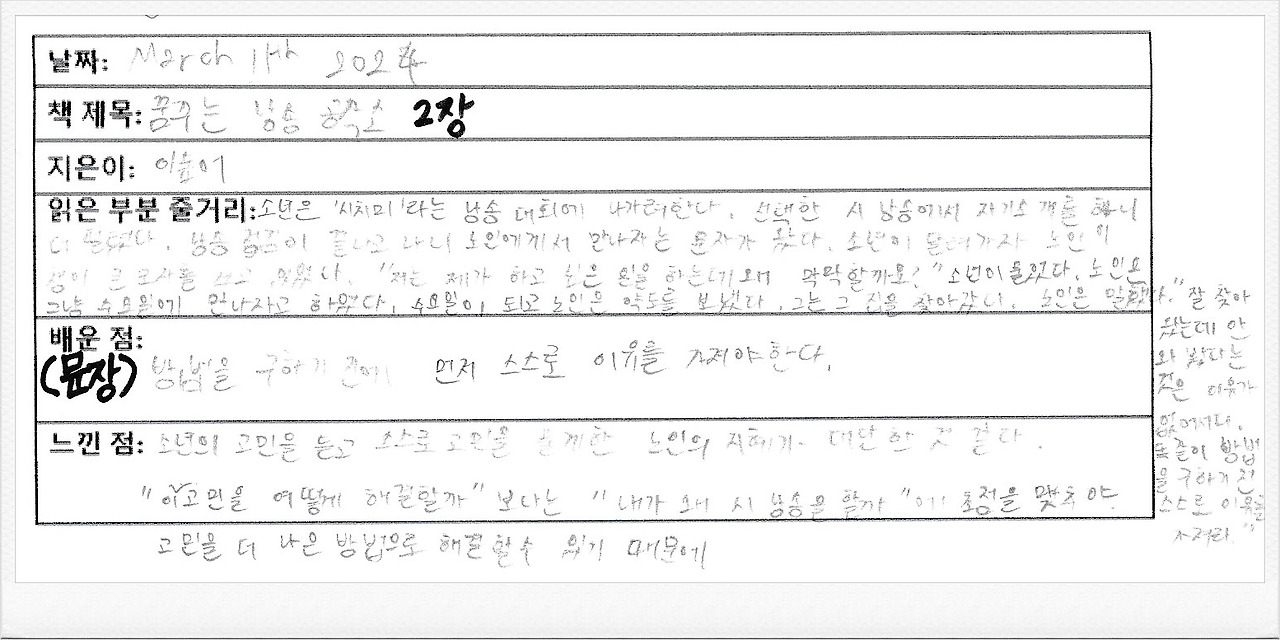 날짜: March 11th 2024
책 제목: 꿈꾸는 낭송 공작소 2장
지은이: 이숲어
읽은 부분 줄거리: 소년은 '시치미'라는 낭송 대회에 나가려한다. 선택한 시 낭송에서 자기소개를 하니
더 떨렸다. 낭송 점검이 끝나고 나니 노인에게서 만나자는 문자가 왔다. 소년이 달려가자 노인이
큰 모자를 쓰고 있었다. "저는 제가 하고 싶은 일을 하는데 왜 막막할까요?" 소년이 물었다. 노인은
그냥 수요일에 만나자고 하였다. 수요일이 되고 노인은 약도를 보냈다. 그는 그 집을 찾아갔니. 노인은 말했다. "잘 찾아
왔는데 안
와 봤다는
것은 이유가
없어서다.
방법
을 구하기 전
스스로 이유를
가져라."
배운 점:
(문장) 방법을 구하기 전에 먼저 스스로 이유를 가져야한다.
느낀 점: 소년의 고민을 듣고 스스로 고민을 풀게한 노인의 지혜가 대단한 것 같다.
"이고민을 어떻게 해결할까" 보나는 "내가 왜 시 낭송을 할까"에 초점을 맞추야
고민을 더 나은 방법으로 해결할수 있기 때문에